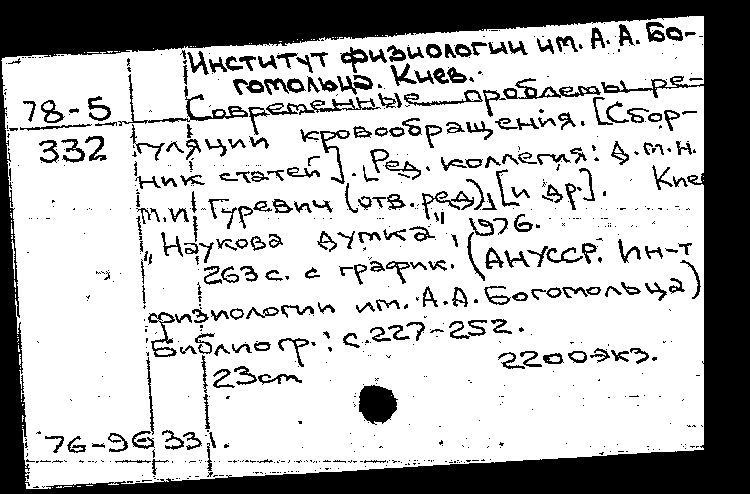 Институт физиологии им. А. А. Бо-
гомольца. Киев.
78-5 Современные проблемы ре-
332 гуляции кровообращения. [Сбор-
ник статей]. [Ред. коллегия: д.м.н.
м.и. Гуревич (отв. ред), [и др]. Кие
„Наукова думка", 1976.
263 с. с график. (АНУССР. Ин-т
физиологии им. А.А. Богомольца)
Библиогр.: с.227-252.
23cm 2200экз.
76-96331.